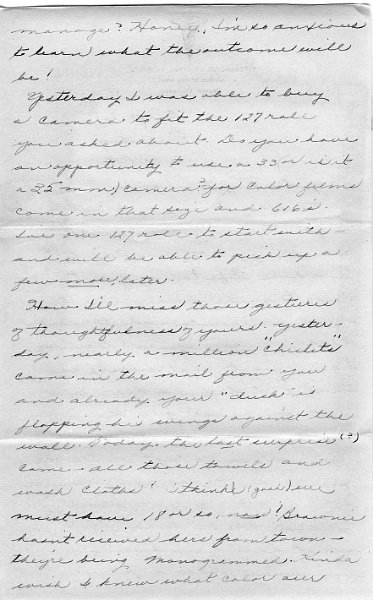 manage? Honey, I'm so anxious
to learn what the outcome will
be!
Yesterday I was able to buy
a camera to fit the 127 role
you asked about. Do you have
an opportunity to use a 33 or is it
a 35 mm) camera? for color films
come in that size and 616's.
I've one 127 roll to start with
and will be able to pick up a
few more, later.
How I'll miss those gestures
of thoughtfulness of yours. Yester-
day, nearly a million "Chiclets"
came in the mail from you
and already your "duck" is
flapping his wings against the
wall. Today, the last surprise (?)
came - all those towels and
wash cloths! I think (gosh) we
must have 18 or so, now! Brownie
hasn't received hers from
they're being monogrammed. Kinda
wish I knew what color our